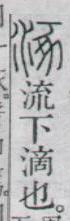 涿流下滴也。